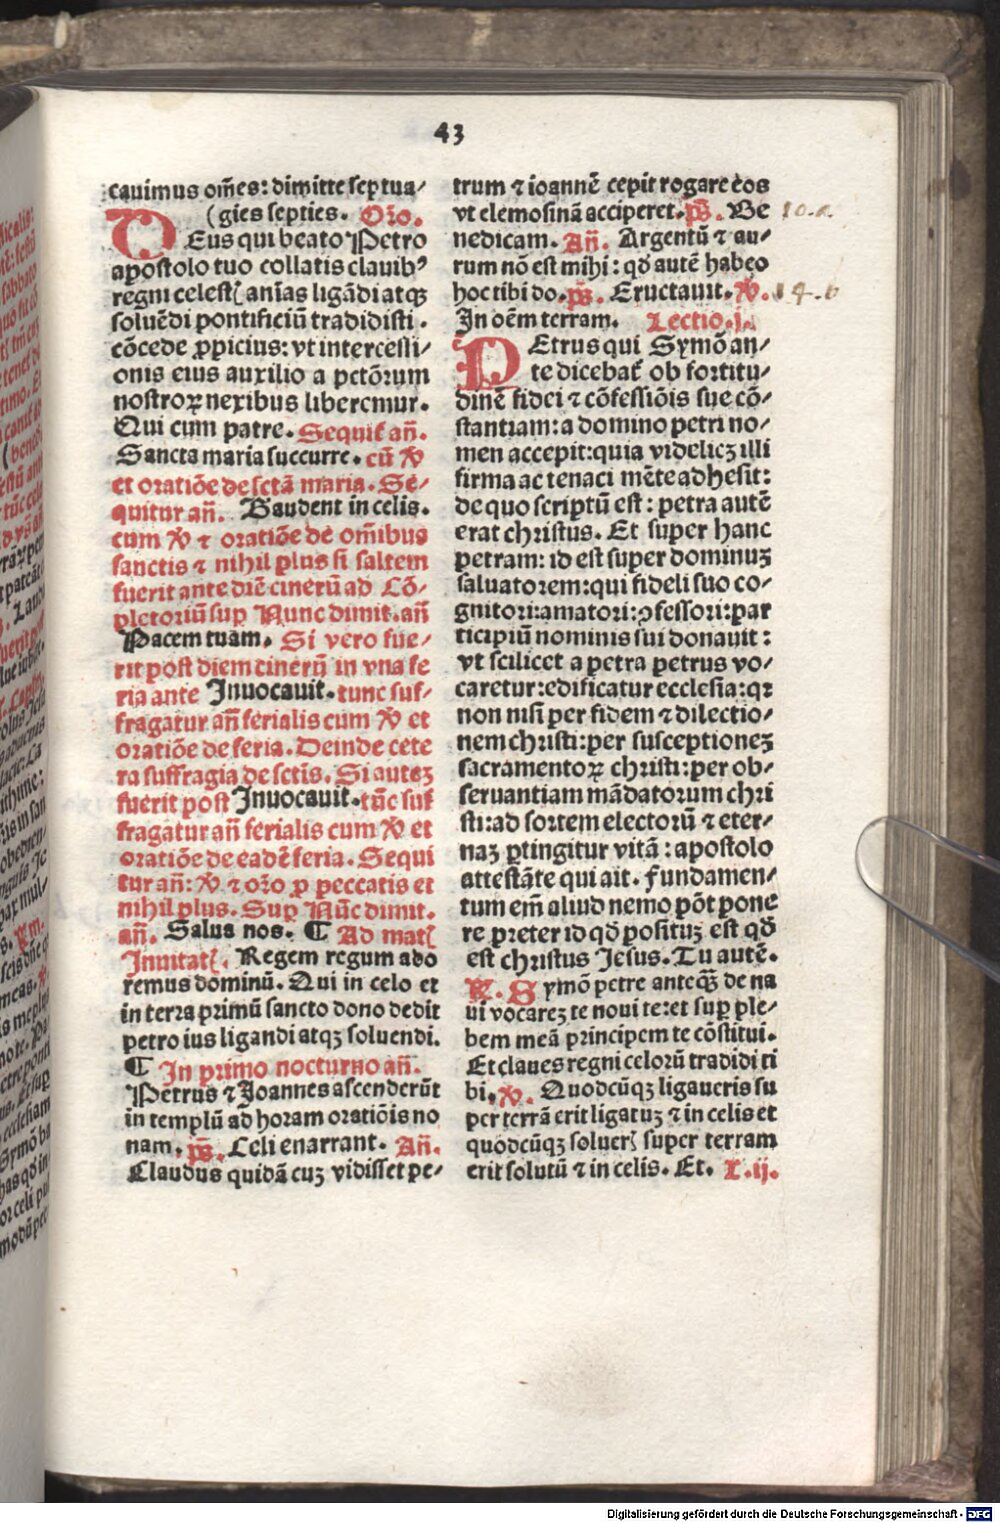 43
cauimus om̄es: dimitte septua/
(gies septies. Or̄o.
DEus qui beato Petro
apostolo tuo collatis clauibꝰ
regni celestꝭ animas ligādi atqꝫ
soluēdi pontificiū tradidisti.
cōcede ꝓpicius: vt intercessi/
onis eius auxilio a pctōrum
nostroꝝ nexibus liberemur.
Qui cum patre. Sequit᷑ an̄.
Sancta maria succurre. cū ℣
et oratiōe de sctā maria. Se/
quitur an̄. Gaudent in celis.
cum ℣ ⁊ oratiōe de om̄ibus
sanctis ⁊ nihil plus si saltem
fuerit ante diē cinerū ad Cō/
pletoriū suꝑ Nunc dimit. an̄
Pacem tuam. Si vero fue/
rit post diem cinerū in vna fe
ria ante Inuocauit. tunc suf/
fragatur an̄ ferialis cum ℣ et
oratiōe de feria. Deinde cete
ra suffragia de sctīs. Si auteꝫ
fuerit post Inuocauit. tūc suf
fragatur an̄ ferialis cum ℣ et
oratiōe de eadē feria. Sequi
tur an̄: ℣ ⁊ or̄o ꝓ peccatis et
nihil plus. Suꝑ Nūc dimit.
an̄. Salua nos. ¶ Ad matꝭ
Inuitatꝭ. Regem regum ado
remus dominū. Qui in celo et
in terra primū sancto dono dedit
petro ius ligandi atqꝫ soluendi.
¶ In primo nocturno an̄.
Petrus ⁊ Joannes ascenderūt
in templū ad horam oratiōis no
nam. ps̄. Celi enarrant. An̄.
Claudus quidā cuꝫ vidisset pe/
trum ⁊ ioannē cepit rogare eos
vt elemosinā acciperet. ps̄. Be 10.a
nedicam. An̄. Argentū ⁊ au/
rum nō est mihi: qđ autē habeo
hoc tibi do. ps̄. Eructauit. ℣. 14.b
In oēm terram. Lectio.j.
PEtrus qui Symōan/
te dicebat᷑ ob fortitu/
dinē fidei ⁊ cōfessiōis sue cō/
stantiam: a domino petri no/
men accepit: quia videlicꝫ illi
firma ac tenaci mēte adhesit:
de quo scriptū est: petra autē
erat christus. Et super hanc
petram: id est super dominuꝫ
saluatorem: qui fideli suo co/
gnitori: amatori: ꝯfessori: par
ticipiū nominis sui donauit:
vt scilicet a petra petrus vo/
caretur: edificatur ecclesia: qꝛ
non nisi per fidem ⁊ dilectio/
nem christi: per susceptioneꝫ
sacramentoꝝ christi: per ob/
seruantiam mādatorum chri
sti: ad sortem electorū ⁊ eter/
naꝫ ꝑtingitur vitā: apostolo
attestāte qui ait. Fundamen/
tum em̄ aliud nemo pōt pone
re preter id qđ posituꝫ est qđ
est christus Jesus. Tu autē.
℟. Symō petre anteqꝫ̄ de na
ui vocareꝫ te noui te: et suꝑ ple/
bem meā principem te cōstitui.
Et claues regni celorū tradidi ti
bi. ℣. Quodcūqꝫ ligaueris su
per terrā erit ligatuꝫ ⁊ in celis et
quodcūqꝫ soluerꝭ super terram
erit solutū ⁊ in celis. Et. L.ij.
Digitalisierung gefördert durch die Deutsche Forschungsgemeinschaft - DFG